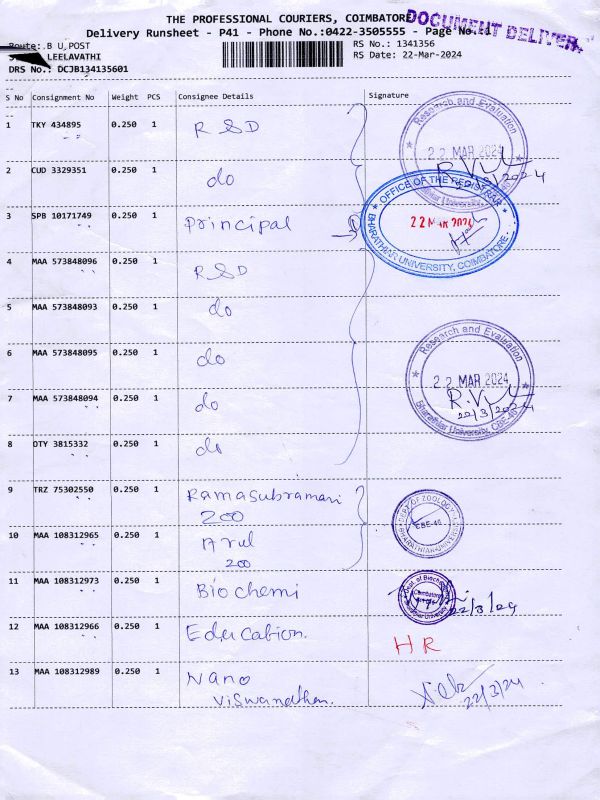 THE PROFESSIONAL COURIERS, COIMBATORE
DOCUMENT DELIVER
Delivery Runsheet - P41 - Phone No.:0422-3505555 - Page No.:1
Route: B U POST
RS No.: 1341356
LEELAVATHI
RS Date: 22-Mar-2024
DRS No.: DCJB134135601
S No Consignment No Weight PCS Consignee Details Signature
1 TKY 434895 0.250 1 R &D
Research and Evaluation
22 MAR 2024
2 CUD 3329351 0.250 1 do
OFFICE OF THE REGISTRAR
3 SPB 10171749 0.250 1 principal
22 MAR 2024
BHARATHIAR UNIVERSITY, COIMBATORE
4 MAA 573848096 0.250 1 R&D
5 MAA 573848093 0.250 1 do
6 MAA 573848095 0.250 1 do
Research and Evaluation
22 MAR 2024
7 MAA 573848094 0.250 1 do
22/3/2024
Bharathiar University, CBE-46
8 OTY 3815332 0.250 1 do
9 TRZ 75302550 0.250 1 Ramasubramani
200
DEPT OF ZOOLOGY
CBE-46
BHARATHIAR UNIVERSITY
10 MAA 108312965 0.250 1 Arul
200
11 MAA 108312973 0.250 1 Biochemi
22/3/24
12 MAA 108312966 0.250 1 Education.
HR
13 MAA 108312989 0.250 1 Nano
Viswanathan.
22/3/24